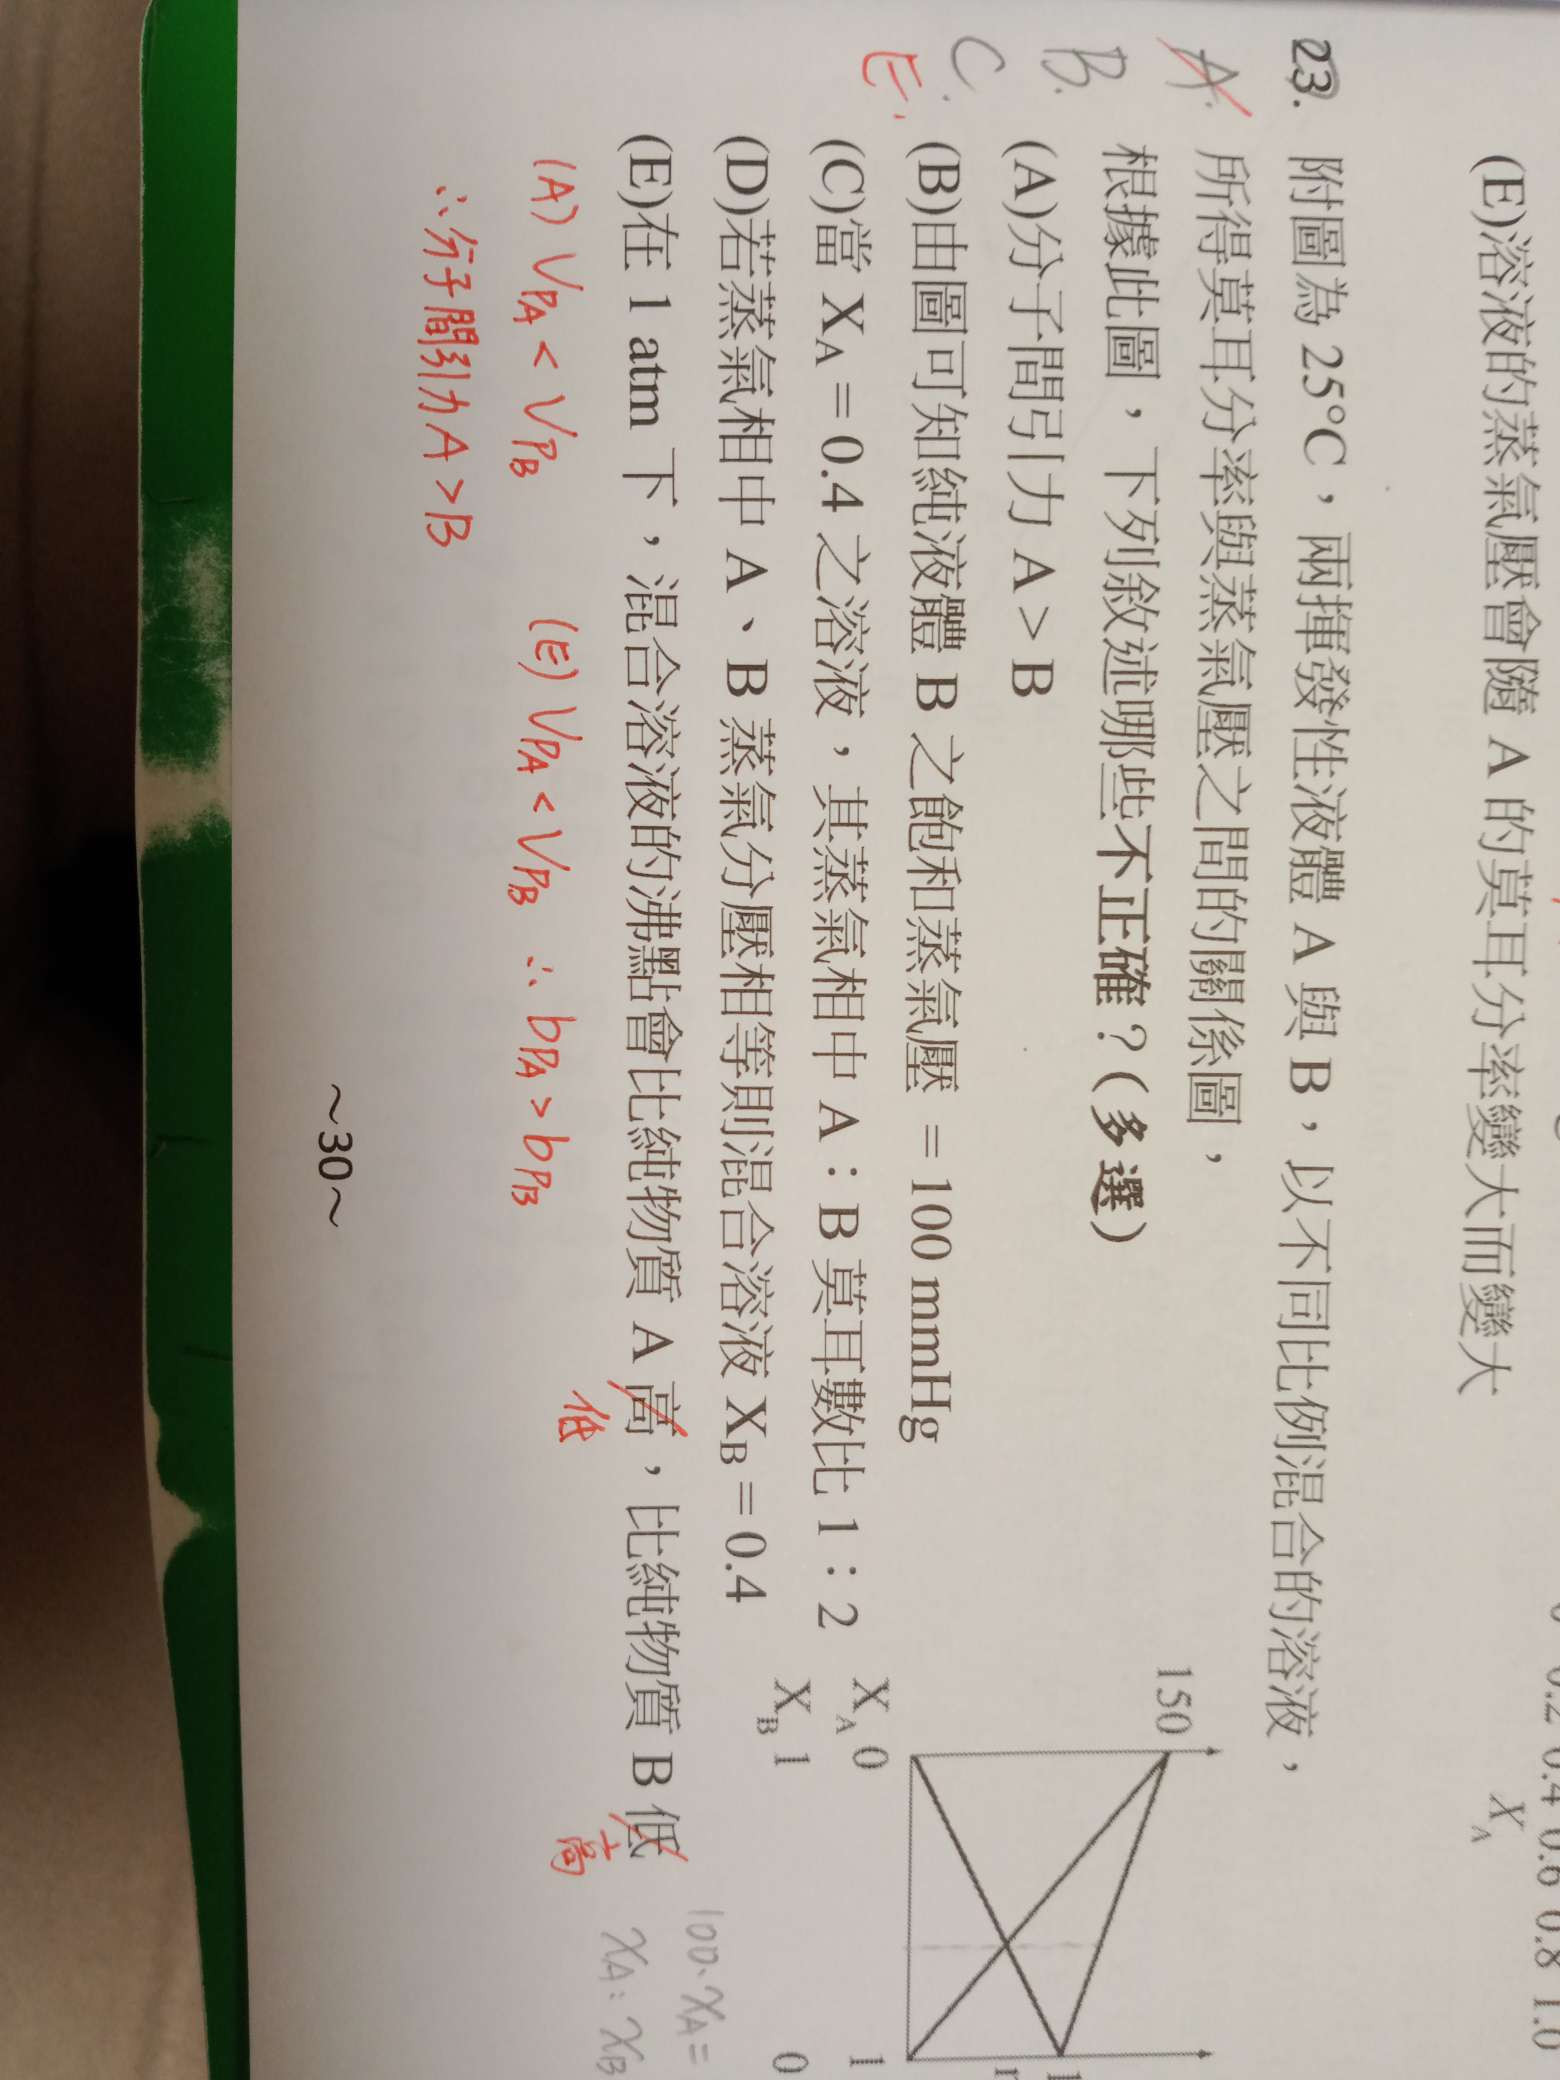 (E)溶液的蒸氣壓會隨 A 的莫耳分率變大而變大
0.2 0.4 0.6 0.8 1.0
X_A
23. 附圖為 25°C，兩揮發性液體 A 與 B，以不同比例混合的溶液，
所得莫耳分率與蒸氣壓之間的關係圖，
根據此圖，下列敘述哪些不正確？(多選)
A.
B.
C.
E.
(A)分子間引力 A > B
(B)由圖可知純液體 B 之飽和蒸氣壓 = 100 mmHg
(C)當 X_A = 0.4 之溶液，其蒸氣相中 A：B 莫耳數比 1：2
(D)若蒸氣相中 A、B 蒸氣分壓相等則混合溶液 X_B = 0.4
(E)在 1 atm 下，混合溶液的沸點會比純物質 A 高，比純物質 B 低
低
高
150
X_A 0 1
X_B 1 0
100·X_A =
X_A : X_B
(A) VP_A < VP_B
∴分子間引力 A > B
(E) VP_A < VP_B ∴ bP_A > bP_B
~30~